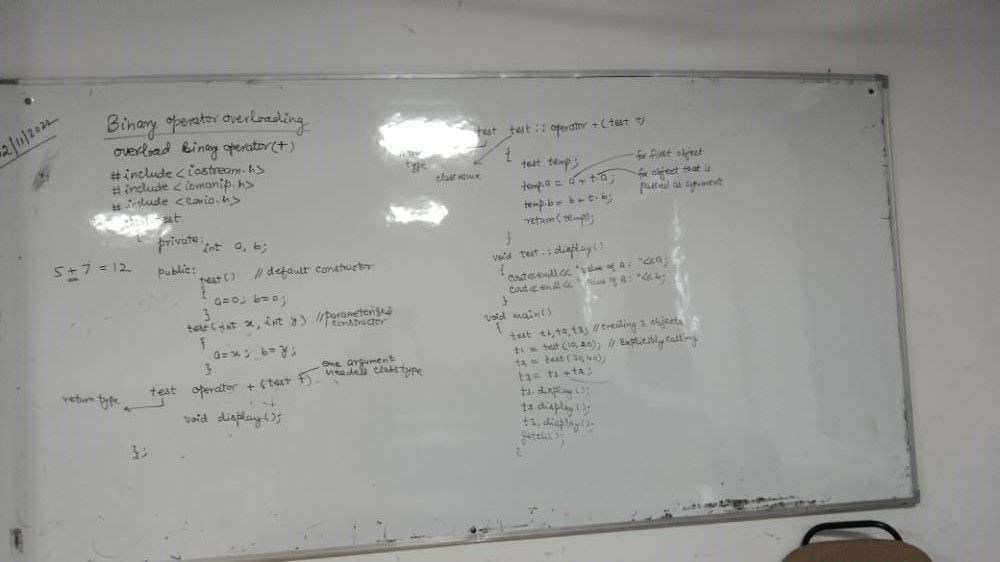 2/11/2022
Binary operator overloading
overload Binary operator(+)
#include <iostream.h>
#include <iomanip.h>
#include <conio.h>
test
{ private:
int a, b;
5 + 7 = 12
public:
test() // default constructor
{
a=0; b=0;
}
test(int x, int y) // parameterised constructor
{
a=x; b=y;
}
one argument
needed class type
test operator + (test t)
return type
void display();
};
test test :: operator + (test t)
type
class name
{
test temp;
for first object
temp.a = a + t.a;
for object that is
passed as argument
temp.b = b + t.b;
return(temp);
}
void test :: display()
{
cout<<endl<< "Value of A: "<<a;
cout<<endl<< "Value of B: "<<b;
}
void main()
{
test t1,t2,t3; // creating 3 objects
t1 = test(10,20); // Explicitly calling
t2 = test(30,40);
t3 = t1 + t2;
.display();
t2.display();
.display();
getch();
}